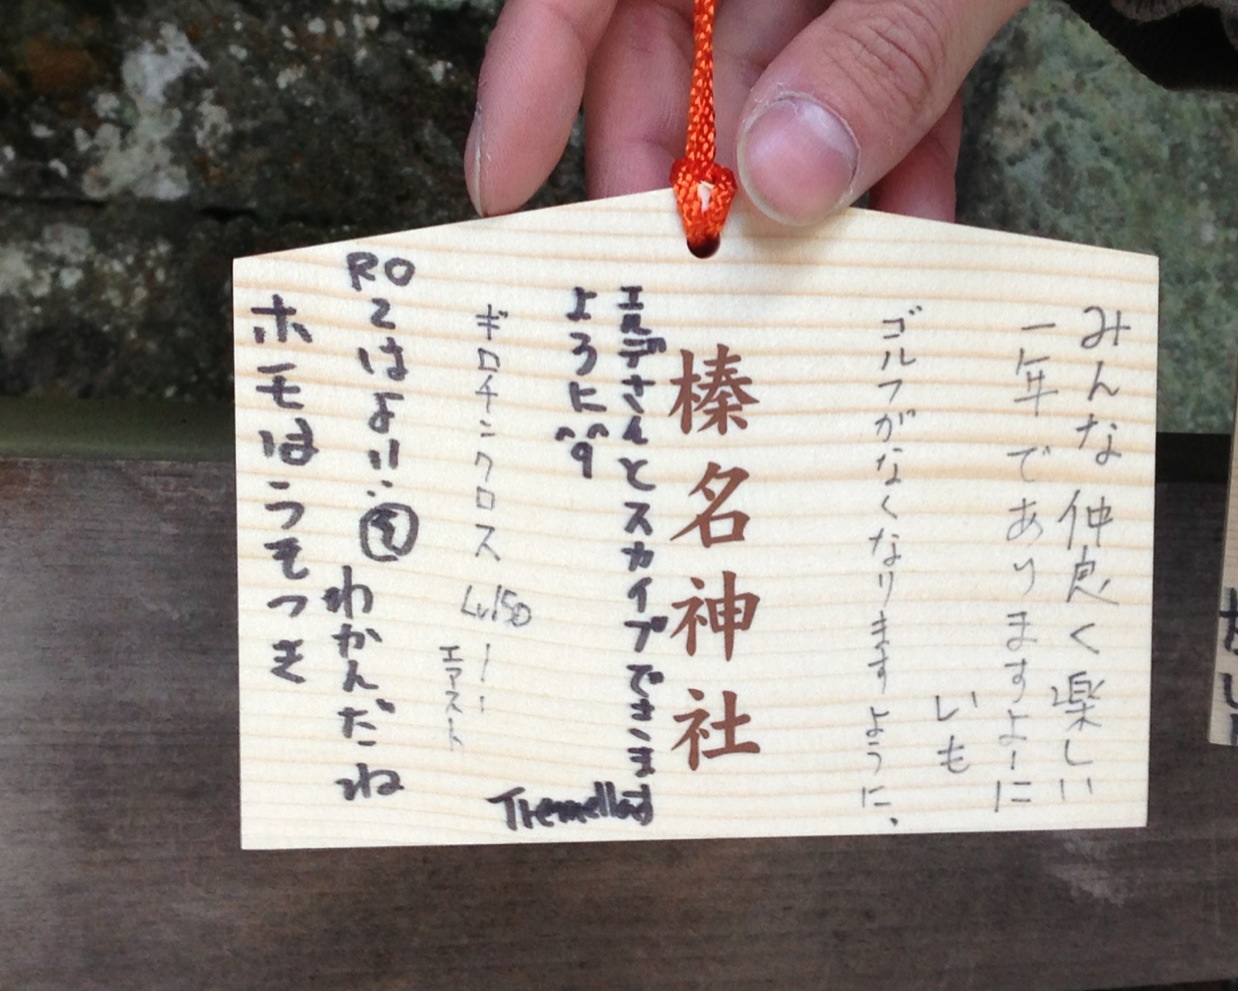 みんな仲良く楽しい
一年でありますよーに
いも
ゴルフがなくなりますように、
榛名神社
エルデさんとスカイプできま
よろに^q^
Tremellad
ギロチンクロス Lv150ー!
エアスト
RO2はよ!!
わかんだね
ホモはうそつき